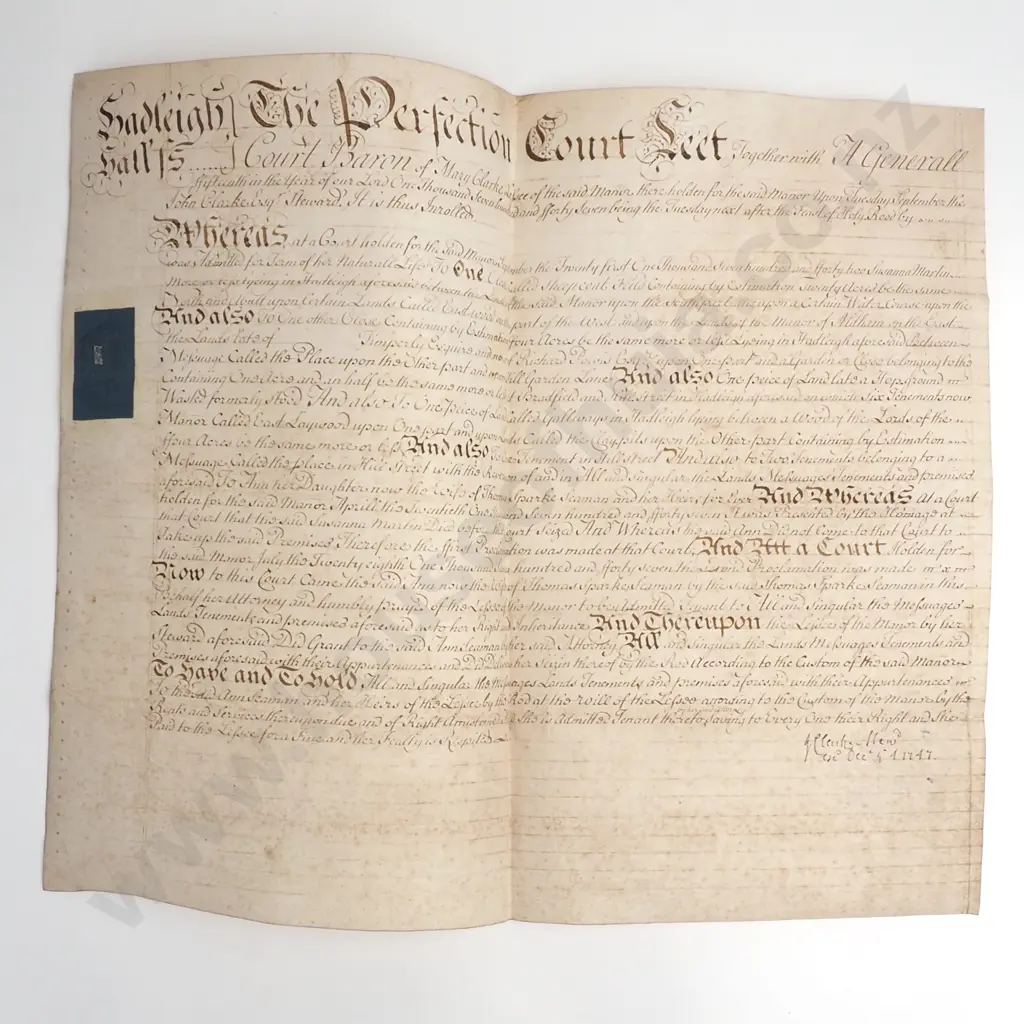 Hadleigh The Perfection Court Leet Together with A Generall
Hall ss Court Baron of Mary Clarke Lessee of the said Manor there holden for the said Manor Upon Tuesday September the
fifteenth in the Year of our Lord One Thousand Seven hundred and fforty Seven being the Tuesday next after the Feast of Holy Rood by
John Clarke Esqr Steward. It is thus Inrolled
Whereas at a Court holden for the said Manor the Twenty first One Thousand Seven hundred and fforty two Susanna Martin
was Admitted for Term of her Naturall Life To One Close Called Sheep coat Field Containing by Estimation Twenty Acres be the same
more or less lying in Hadleigh aforesaid between the Lands of the said Manor upon the part and upon a Certain Water Course upon the
South and Abutt upon Certain Lands Called East part of the West and upon the Lands of the Manor of on the East
And also To One other Close Containing by Estimation four Acres be the same more or less Lyeing in Hadleigh aforesaid Between
the Lands late of Timperly Esquire and of Richard Esqr upon One part and a Garden or Close belonging to the
Messuage Called the Place upon the Other part and upon Garden Lane And also One peice of Land late a
Containing One Acre and an half be the same more or less Bradfield and Street in Hadleigh aforesaid on which Six Tenements now
Wasted formerly stood And also To One Peice of Land Called Gallways in Hadleigh lyeing between a Wood of the Lords of the
Manor Called East Laywood upon One part and upon Lands Called the Claypits upon the Other part Containing by Estimation
ffour Acres be the same more or less And also To One Tenement in Street And also to Two Tenements belonging to a
Messuage Called the place in Street with the of and in All and Singular the Lands Messuages Tenements and premises
aforesaid To Ann her Daughter now the Wife of Thomas Sparke Seaman and her Heirs for Ever And Whereas At a Court
holden for the said Manor Aprill the Twentieth One Thousand Seven hundred and fforty seven It was Presented by the Homage at
that Court that the said Susanna Martin Died before that Court Seized And Whereas the said Ann Did not Come to that Court to
Take up the said Premises Therefore the ffirst Proclamation was made at that Court, And Att a Court Holden for
the said Manor July the Twenty eighth One Thousand Seven hundred and fforty seven the Second Proclamation was made
Now to this Court Came the said Ann now the Wife of Thomas Sparke Seaman by the said Thomas Sparke Seaman in this
Behalf her Attorney and humbly prayed of the Lessee of the Manor to be Admitted Tenant to All and Singular the Messuages
Lands Tenements and premises aforesaid as to her Right and Inheritance And Thereupon the Lessee of the Manor by her
Steward aforesaid Did Grant to the said Ann Seaman by her said Attorney All and Singular the Lands Messuages Tenements and
Premises aforesaid with their Appurtenances and Did Deliver her Seizin thereof by the Rod According to the Custom of the said Manor
To Have and To Hold All and Singular the Messuages Lands Tenements and premises aforesaid with their Appurtenances
To the said Ann Seaman and her Heirs of the Lessee by the Rod at the Will of the Lessee according to the Custom of the Manor by the
Rents and Services thereupon due and of Right Accustomed She is Admitted Tenant thereto Saving to Every One their Right and She
Paid to the Lessee for a Fine and her Fealty is Respited
J Clarke Stewd
Decr 1747